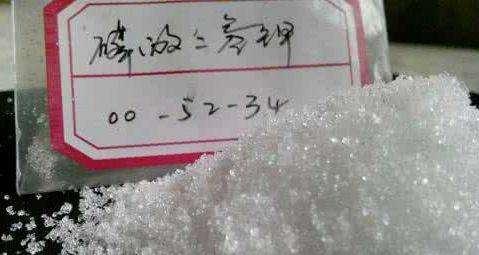 磷酸二氢钾
00-52-34